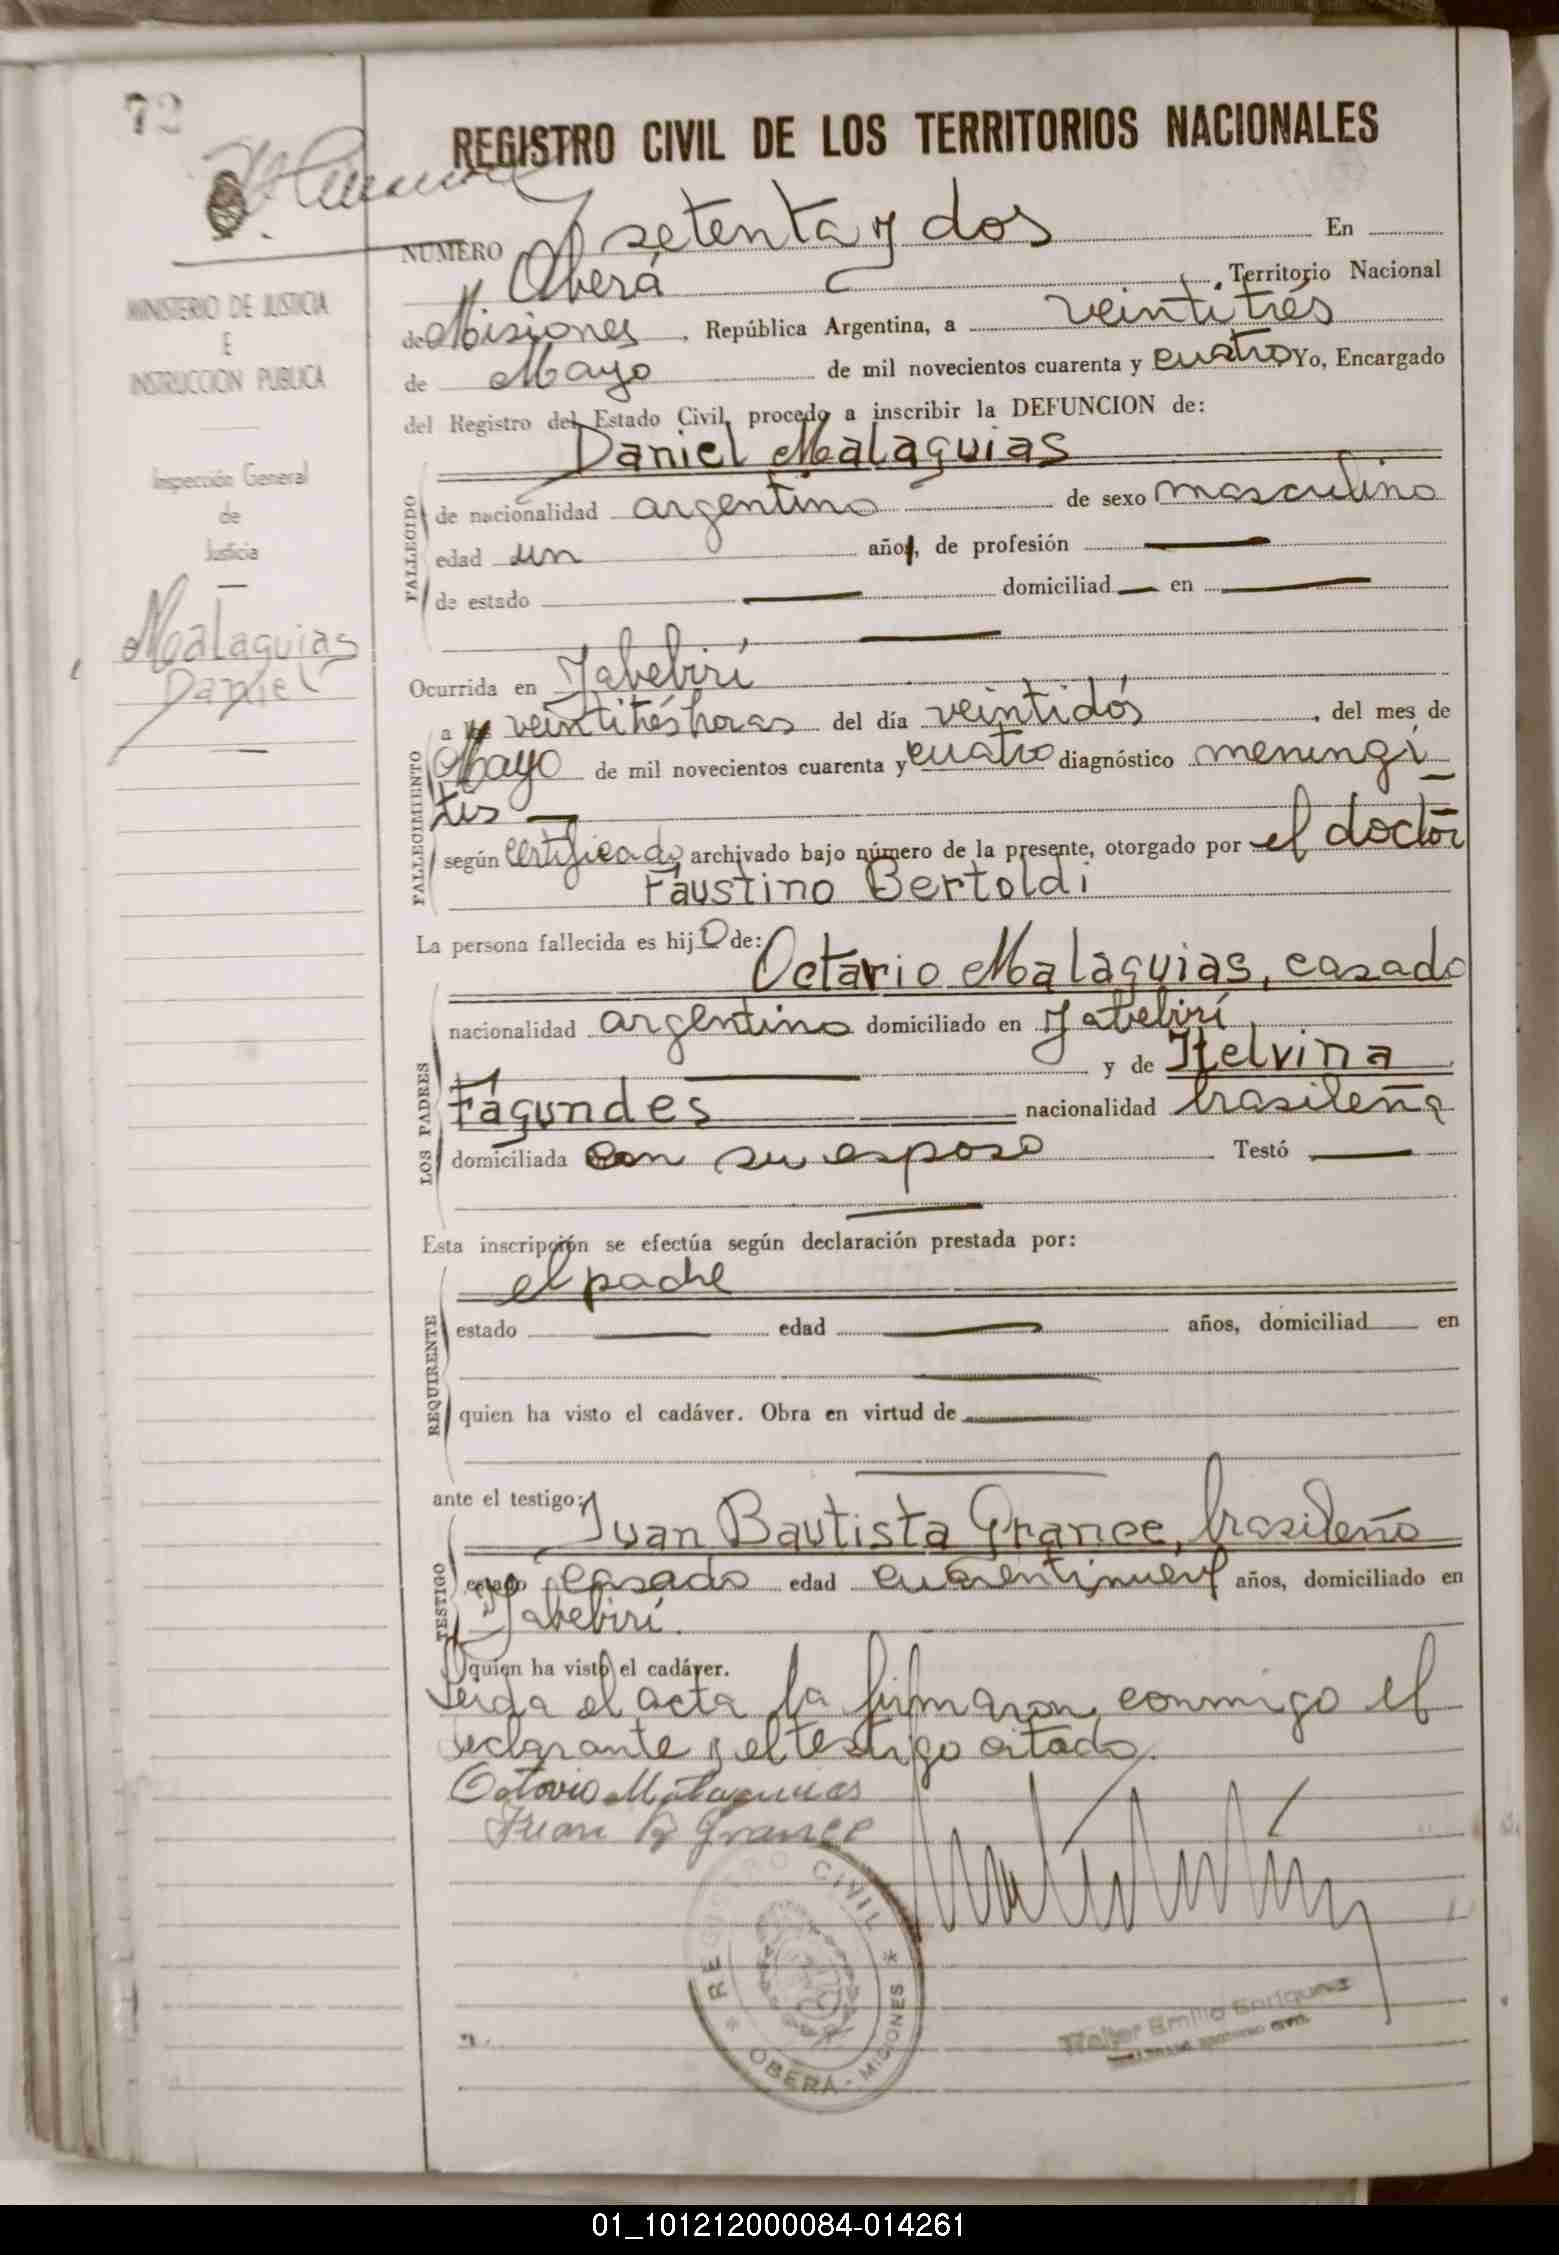 72
REGISTRO CIVIL DE LOS TERRITORIOS NACIONALES
NUMERO setenta y dos En
Oberá Territorio Nacional
de Misiones, República Argentina, a veintitrés
de Mayo de mil novecientos cuarenta y cuatro Yo, Encargado
del Registro del Estado Civil, procedo a inscribir la DEFUNCION de:
MINISTERIO DE JUSTICIA
E
INSTRUCCION PUBLICA
Inspección General
de
Justicia
Malaguias
Daniel
FALLECIDO
Daniel Malaguias
de nacionalidad argentino de sexo masculino
edad un año, de profesión —
de estado — domiciliad — en —
Ocurrida en Jabebirí
FALLECIMIENTO
a las veintitrés horas del día veintidós, del mes de
Mayo de mil novecientos cuarenta y cuatro diagnóstico meningi
tis —
según certificado archivado bajo número de la presente, otorgado por el doctor
Faustino Bertoldi
La persona fallecida es hijo de:
LOS PADRES
Octavio Malaguias, casado
nacionalidad argentino domiciliado en Jabebirí
— y de Itelvina
Fagundes nacionalidad brasileña
domiciliada con su esposo Testó —
Esta inscripción se efectúa según declaración prestada por:
REQUIRENTE
el padre
estado — edad — años, domiciliad en
—
quien ha visto el cadáver. Obra en virtud de —
ante el testigo:
TESTIGO
Juan Bautista Grance, brasileño
estado casado edad cuarentinueve años, domiciliado en
Jabebirí.
quien ha visto el cadáver.
Leida el acta la firmaron conmigo el
declarante y el testigo citado.
Octavio Malaguias
Juan B Grance
REGISTRO CIVIL
* OBERÁ - MISIONES *
Walter Emilio Enriquez
01_101212000084-014261